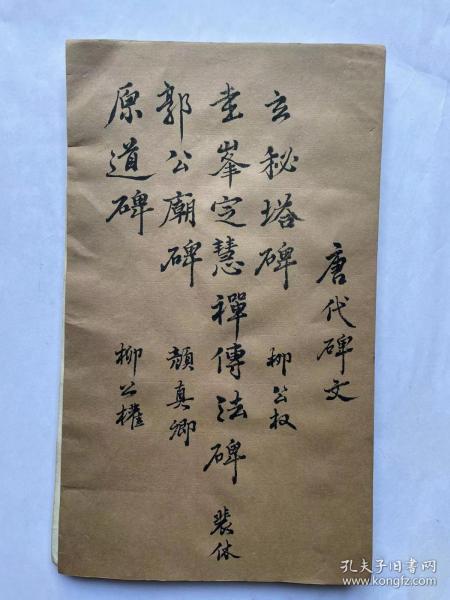 唐代碑文
玄秘塔碑 柳公权
圭峯定慧禪傳法碑 裴休
郭公廟碑 顏真卿
原道碑 柳公權
孔夫子旧书网
www.kongfz.com